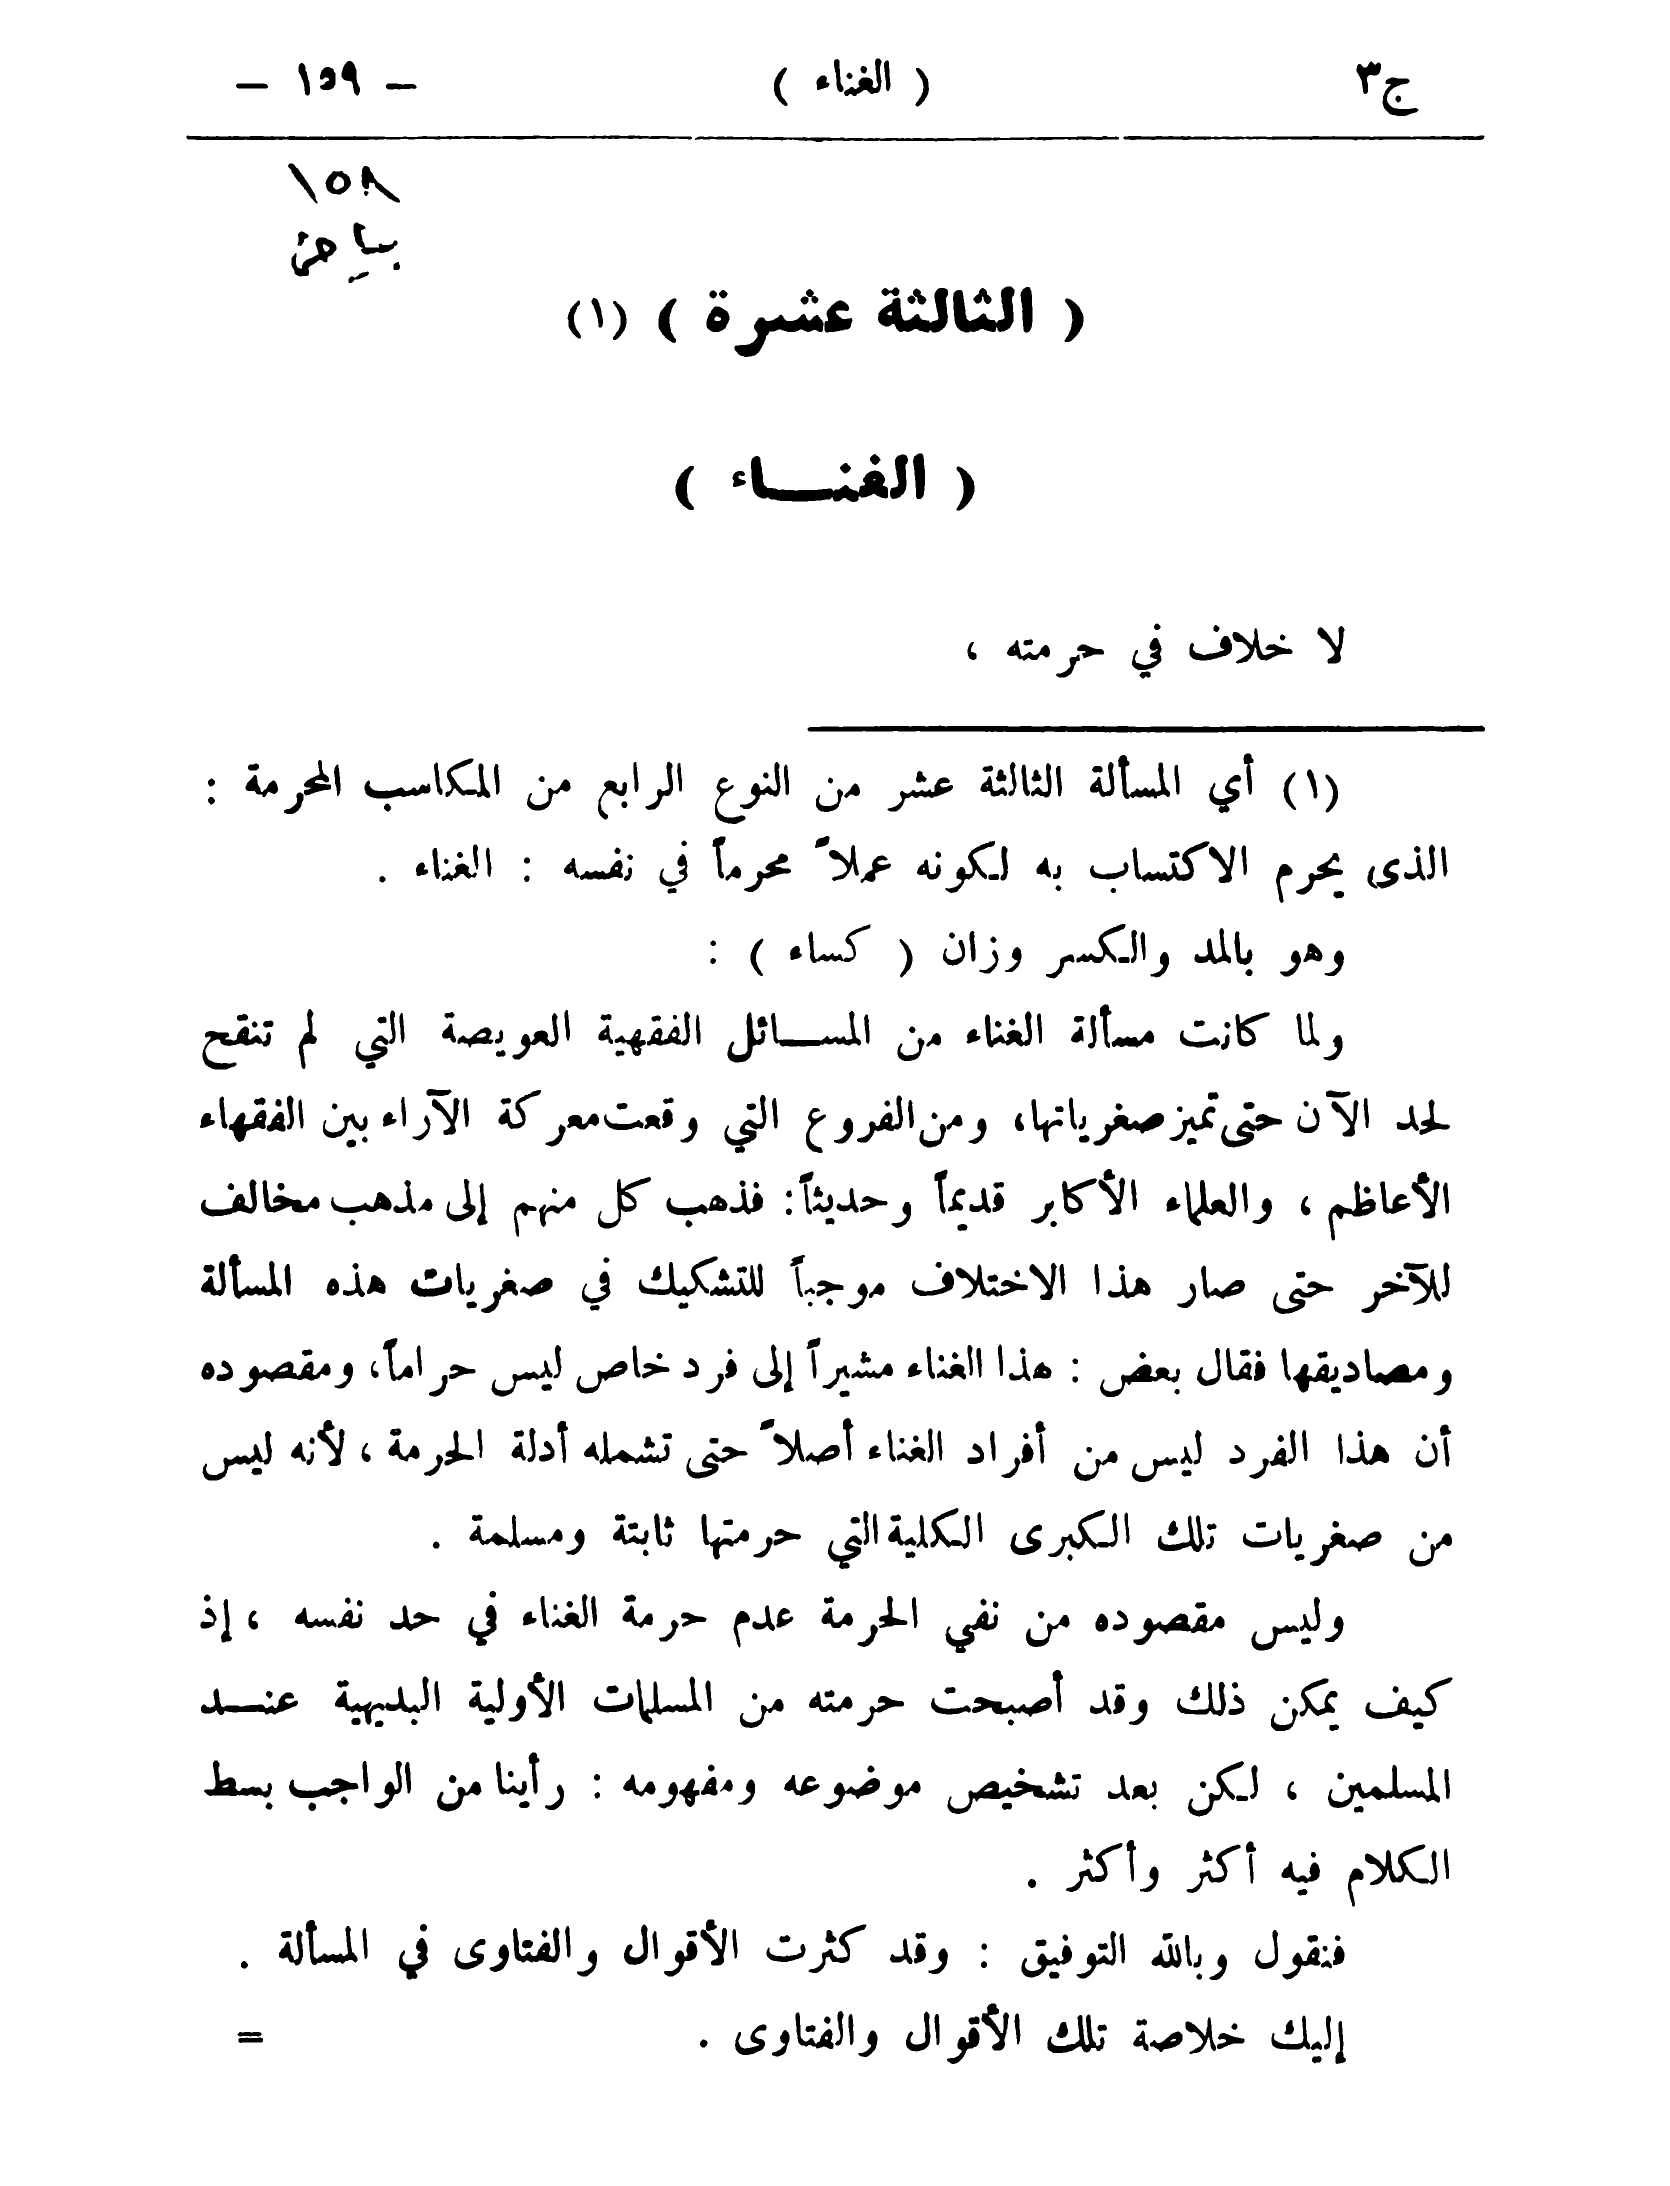 ج٣ ( الغناء ) - ١٥٩ -
١٥٨
بياض
( الثالثة عشرة ) (١)
( الغنـــاء )
لا خلاف في حرمته ،
(١) أي المسألة الثالثة عشر من النوع الرابع من المكاسب المحرمة :
الذى يحرم الاكتساب به لكونه عملاً محرماً في نفسه : الغناء .
وهو بالمد والكسر وزان ( كساء ) :
ولما كانت مسألة الغناء من المســائل الفقهية العويصة التي لم تنقح
لحد الآن حتى تميز صغرياتها، ومن الفروع التي وقعت معركة الآراء بين الفقهاء
الأعاظم ، والعلماء الأكابر قديماً وحديثاً: فذهب كل منهم إلى مذهب مخالف
للآخر حتى صار هذا الاختلاف موجباً للتشكيك في صغريات هذه المسألة
ومصاديقها فقال بعض : هذا الغناء مشيراً إلى فرد خاص ليس حراماً، ومقصوده
أن هذا الفرد ليس من أفراد الغناء أصلاً حتى تشمله أدلة الحرمة ، لأنه ليس
من صغريات تلك الكبرى الكلية التي حرمتها ثابتة ومسلمة .
وليس مقصوده من نفي الحرمة عدم حرمة الغناء في حد نفسه ، إذ
كيف يمكن ذلك وقد أصبحت حرمته من المسلمات الأولية البديهية عنــد
المسلمين ، لكن بعد تشخيص موضوعه ومفهومه : رأينا من الواجب بسط
الكلام فيه أكثر وأكثر .
فنقول وبالله التوفيق : وقد كثرت الأقوال والفتاوى في المسألة .
إليك خلاصة تلك الأقوال والفتاوى . =